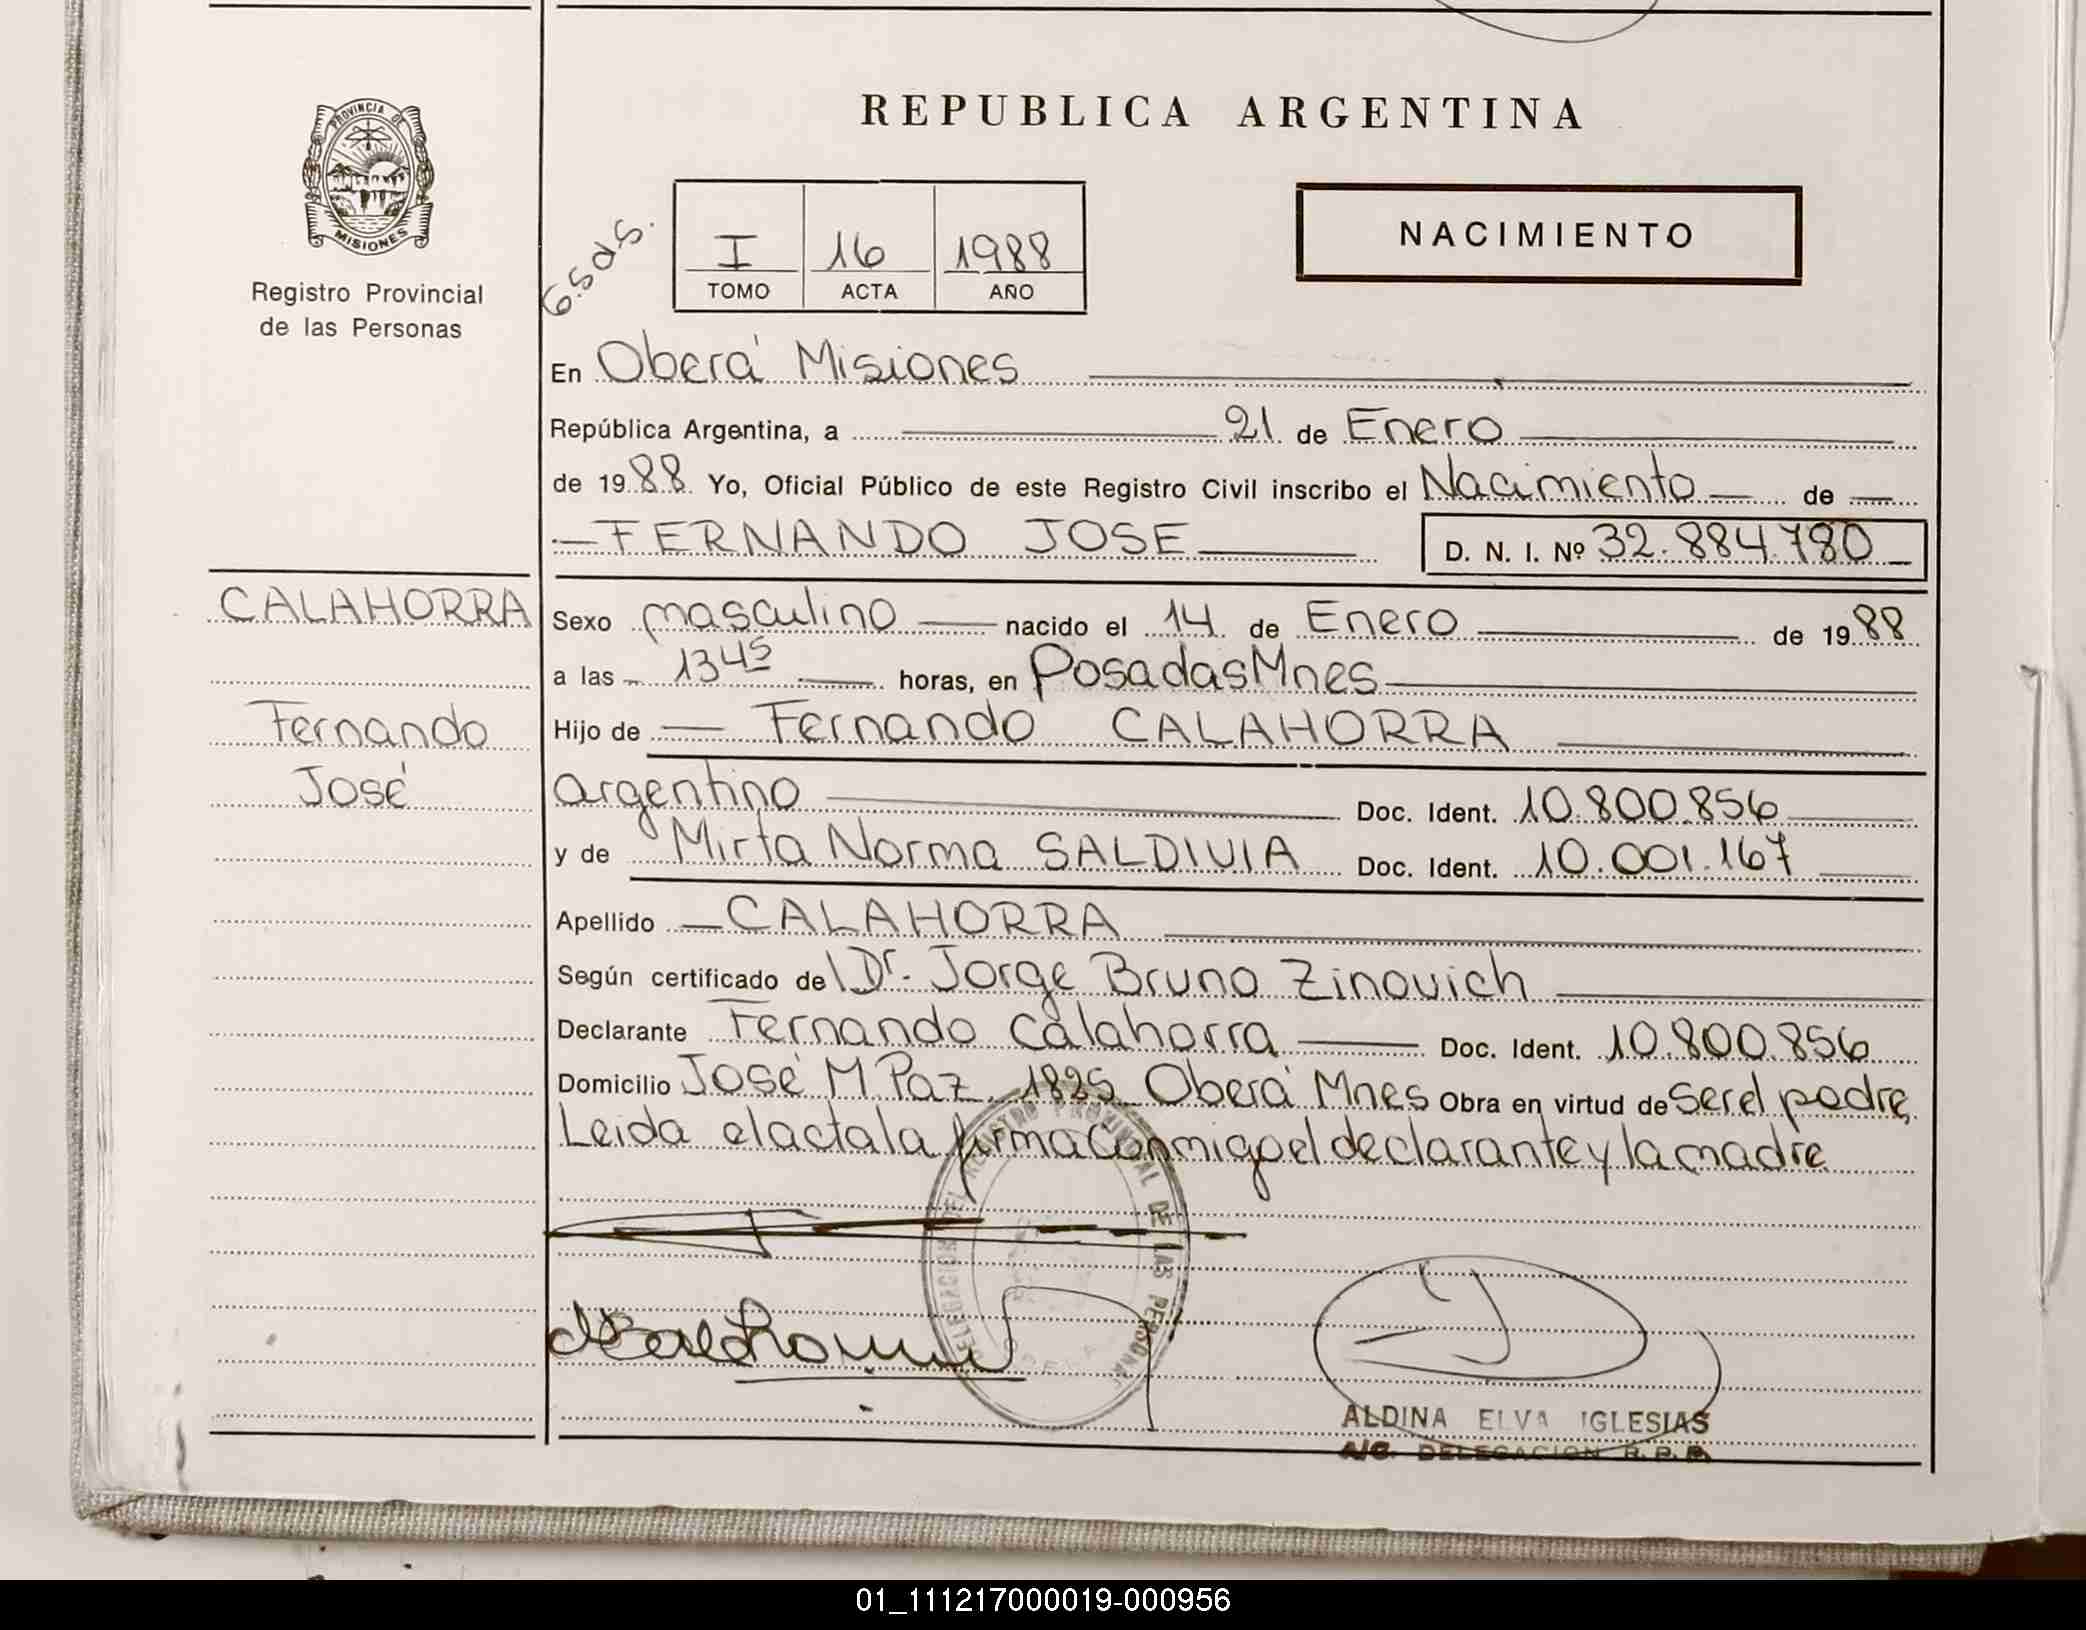 REPUBLICA ARGENTINA
PROVINCIA DE
MISIONES
Registro Provincial
de las Personas
G.S.d.S.
I 16 1988
TOMO ACTA AÑO
NACIMIENTO
En Oberá Misiones
República Argentina, a 21 de Enero
de 1988 Yo, Oficial Público de este Registro Civil inscribo el Nacimiento de
FERNANDO JOSE D. N. I. Nº 32.884.780
CALAHORRA
Fernando
José
Sexo masculino nacido el 14 de Enero de 1988
a las 1345 horas, en Posadas Mnes
Hijo de Fernando CALAHORRA
argentino Doc. Ident. 10.800.856
y de Mirta Norma SALDIVIA Doc. Ident. 10.001.167
Apellido CALAHORRA
Según certificado del Dr. Jorge Bruno Zinovich
Declarante Fernando Calahorra Doc. Ident. 10.800.856
Domicilio José M. Paz 1825 Oberá Mnes Obra en virtud de ser el padre,
Leida el acta la firma conmigo el declarante y la madre
DELEGACION DEL REGISTRO PROVINCIAL DE LAS PERSONAS
OBERA
ALDINA ELVA IGLESIAS
A/C. DELEGACION R. P. P.
01_111217000019-000956